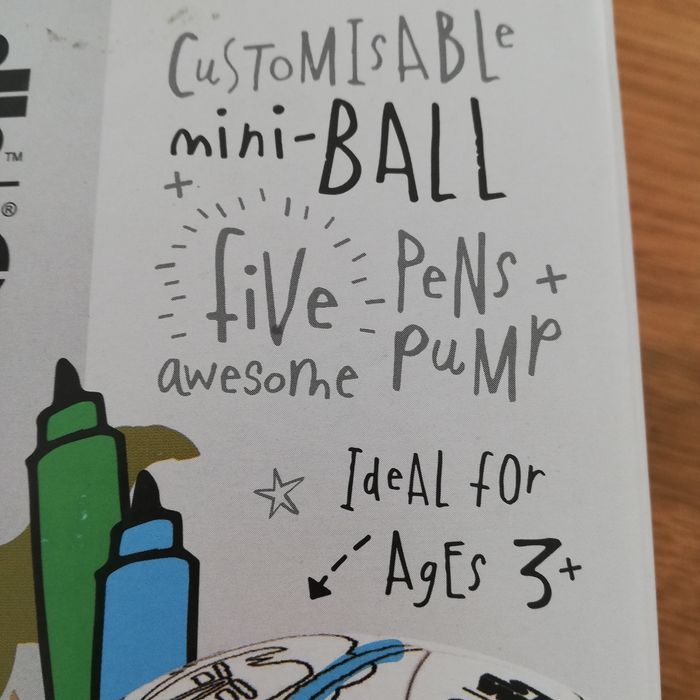 CuSTOMIsABLe
mini-BALL
+
five PeNs +
awesome PuMP
IdeAL fOr
AgEs 3+
TM
®